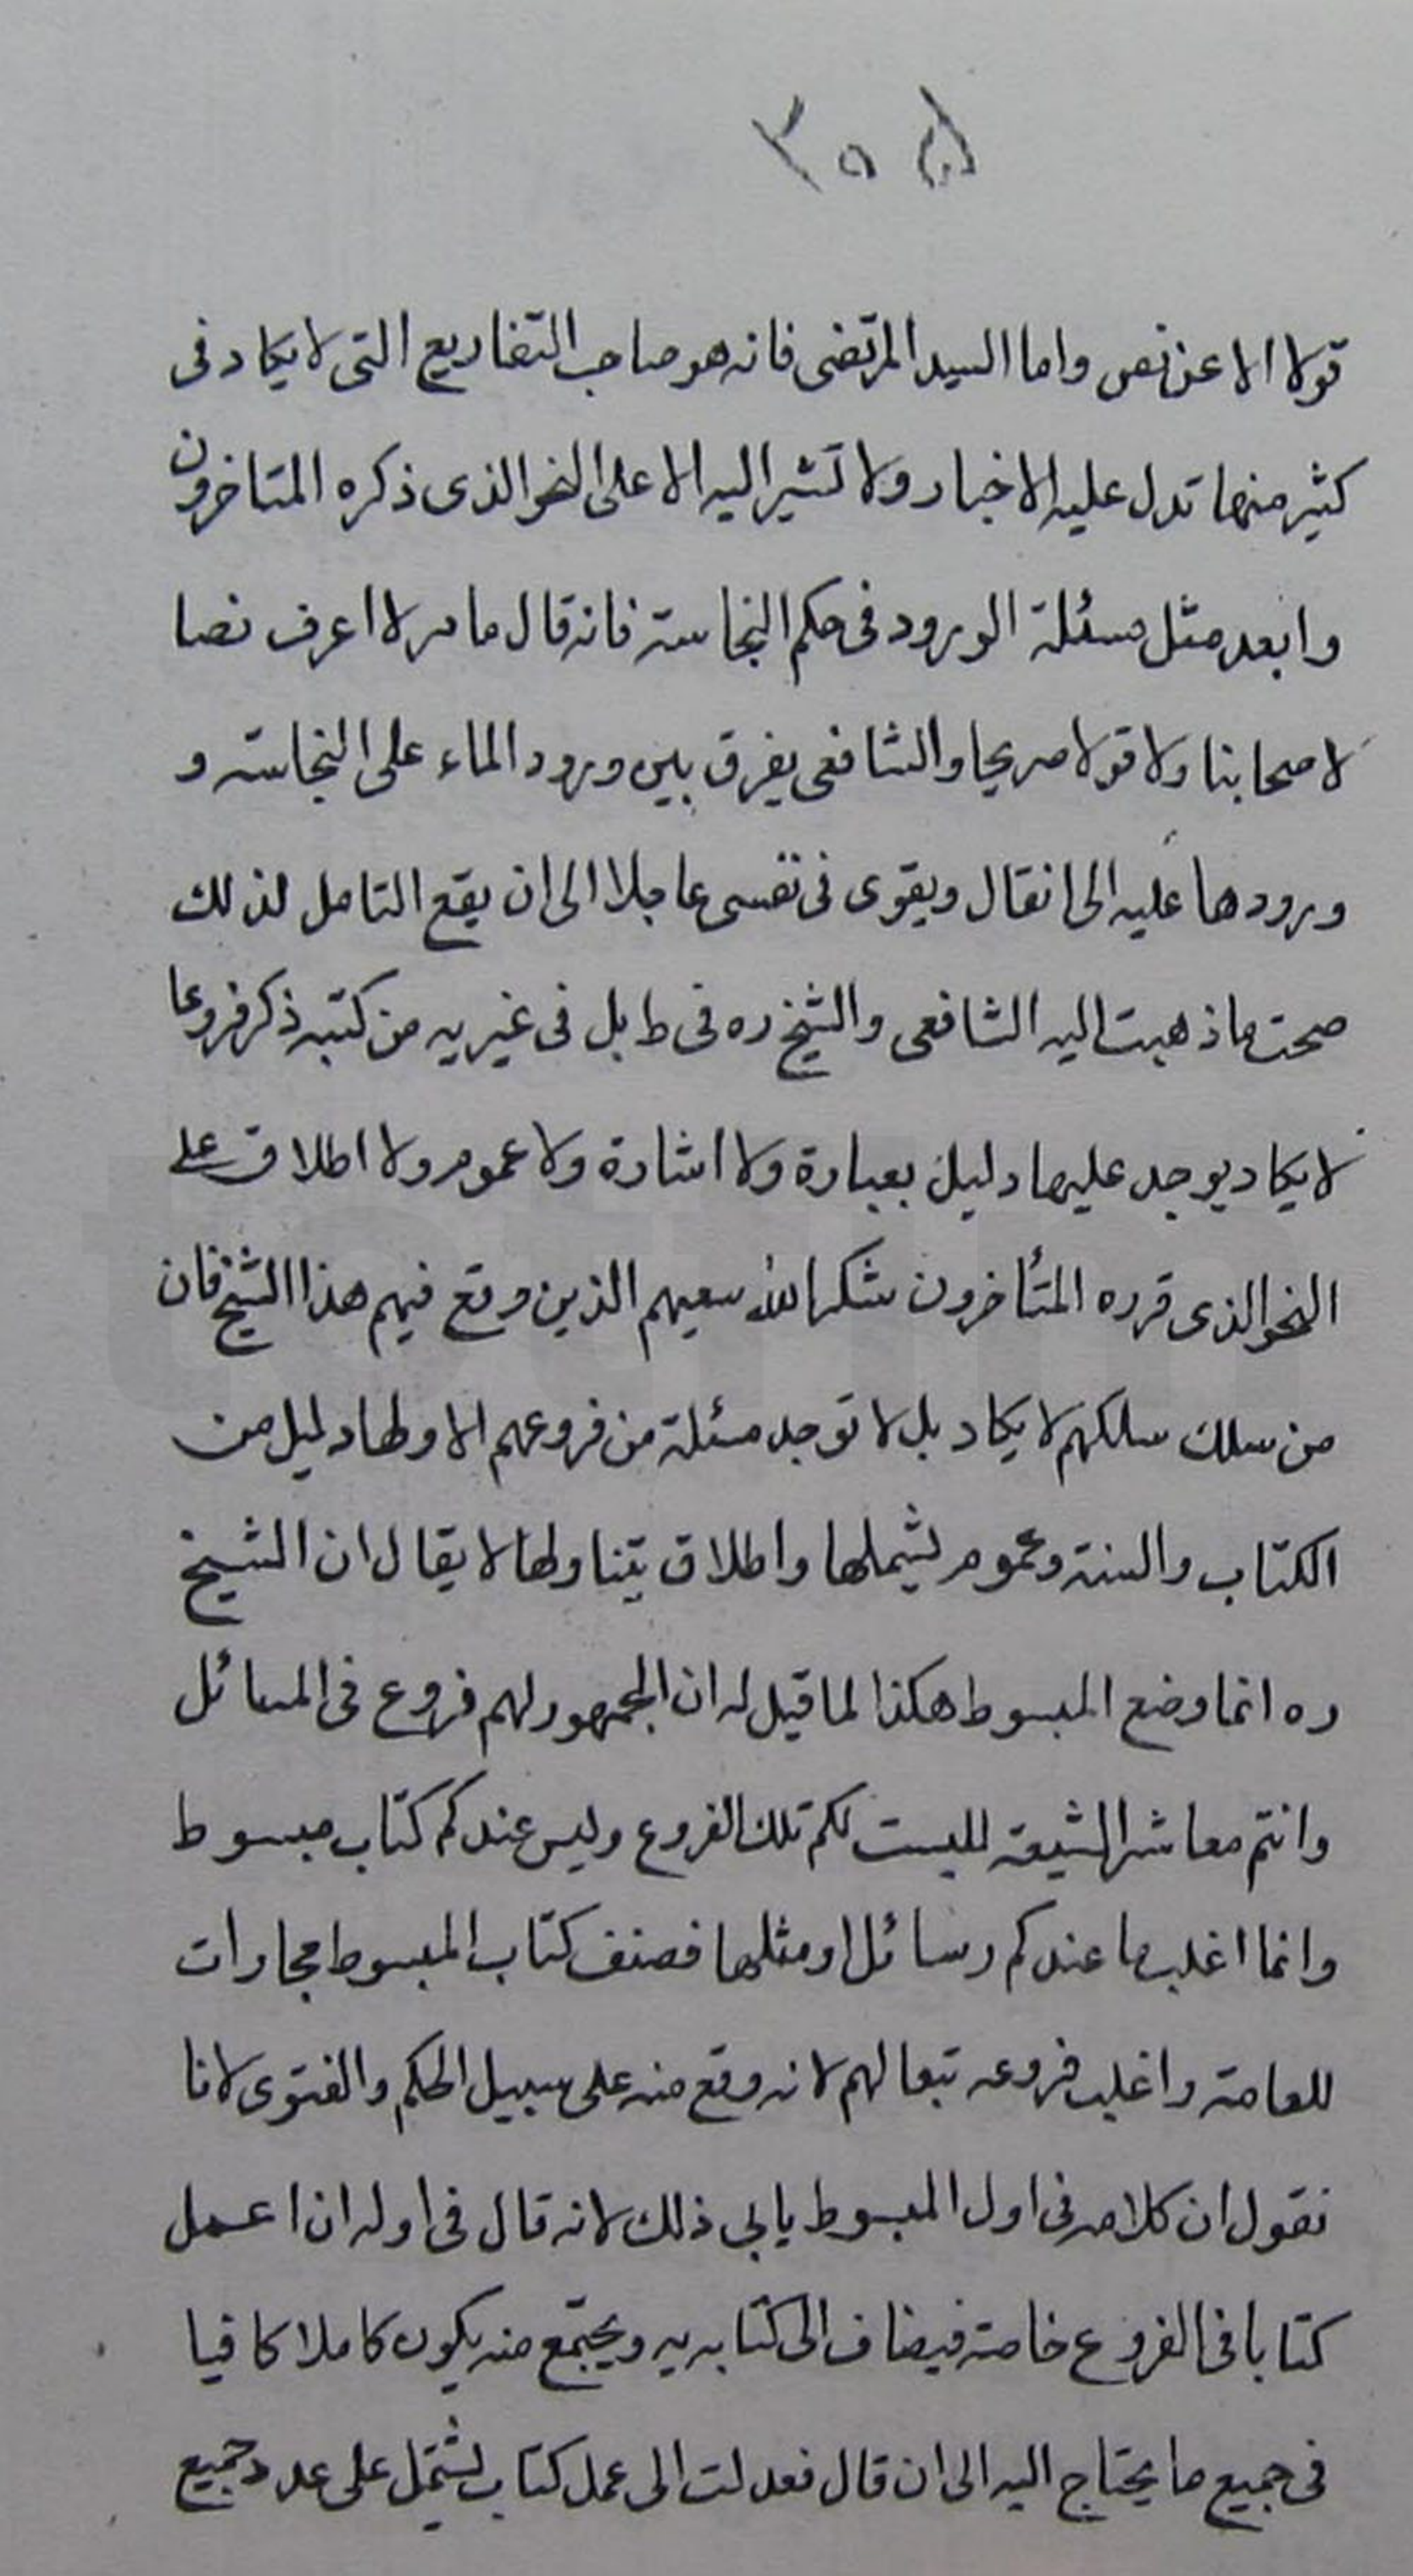 ٣٥٥
قولا الا عن نص واما السيد المرتضى فانه هو صاحب التفاريع التى لا يكاد فى
كثير منها تدل عليه الاخبار ولا تشير اليه الا على النحو الذى ذكره المتاخرون
وابعد مثل مسئلة الورود فى حكم النجاسة فانه قال ما مر لا اعرف نصا
لاصحابنا ولا قولا صريحا والشافعى يفرق بين ورود الماء على النجاسة و
ورودها عليه الى انقال ويقوى فى نفسى عاجلا الى ان يقع التامل لذلك
صحت ما ذهبت اليه الشافعى والشيخ ره فى ط بل فى غير يه من كتبه ذكر فروعا
لا يكاد يوجد عليها دليل بعبارة ولا اشارة ولا عموم ولا اطلاق على
النحو الذى قرره المتأخرون شكر الله سعيهم الذين وقع فيهم هذا الشيخ فان
من سلك سلكهم لا يكاد بل لا توجد مسئلة من فروعهم الا ولها دليل من
الكتاب والسنة وعموم يشملها واطلاق يتناولها لا يقال ان الشيخ
ره انما وضع المبسوط هكذا لما قيل له ان الجمهور لهم فروع فى المسائل
وانتم معاشر الشيعة لليست لكم تلك الفروع وليس عندكم كتاب مبسوط
وانما اغلب ما عندكم رسائل او مثلها فصنف كتاب المبسوط مجارات
للعامة واغلب فروعه تبعا لهم لانه وقع منه على سبيل الحكم والفتوى لانا
نقول ان كلامه فى اول المبسوط يابى ذلك لانه قال فى اوله ان اعمل
كتابا فى الفروع خاصة فيضاف الى كتابه يه ويجتمع منه يكون كاملا كافيا
فى جميع ما يحتاج اليه الى ان قال فعدلت الى عمل كتاب يشتمل على عدد جميع